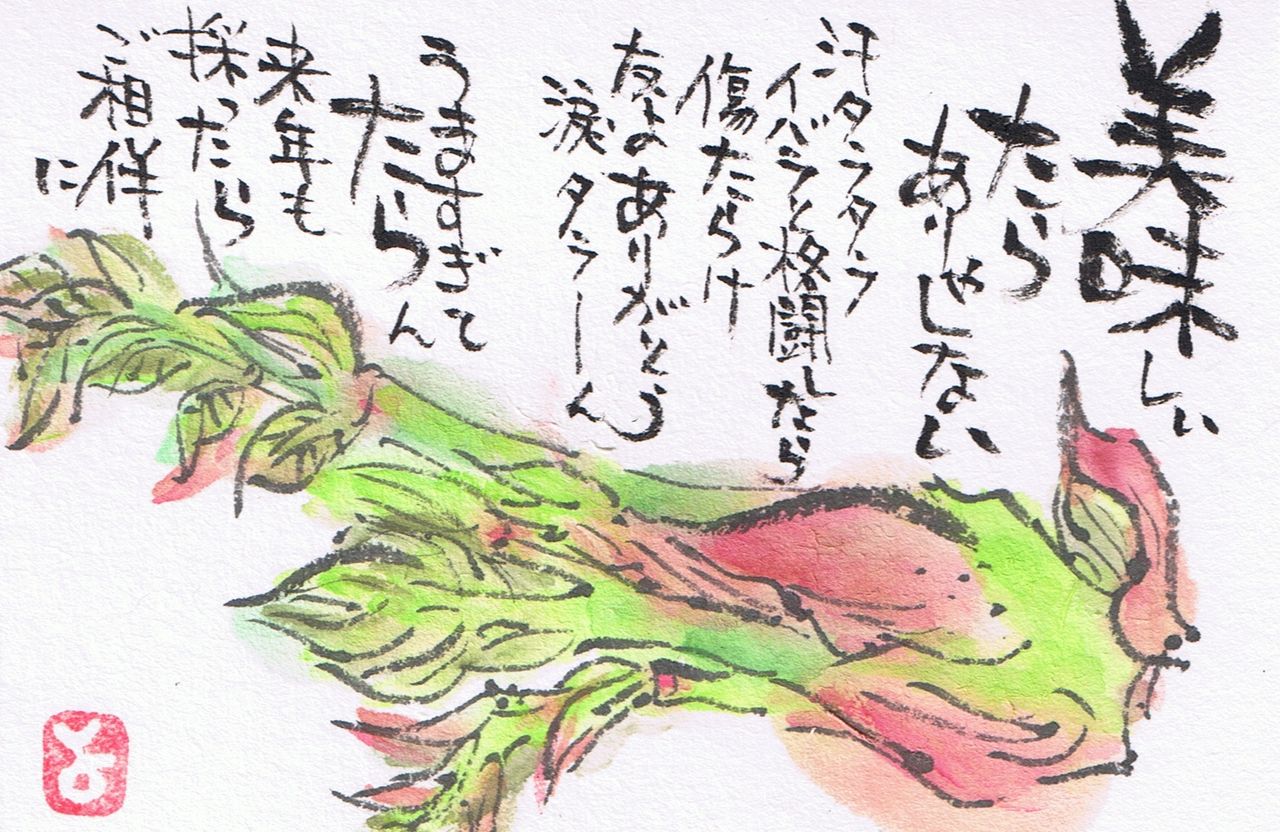 美味しい
たら
ありゃしない
汗タラタラ
イバラと格闘したら
傷たらけ
友よありがとう
涙タラーん
うますぎて
たらん
来年も
採ったら
ご相伴
に
と